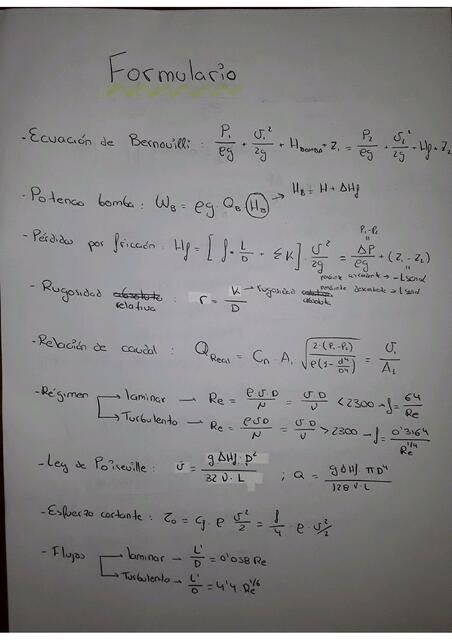 Formulario
- Ecuación de Bernouilli : P₁/ρg + υ₁²/2g + H_BOMBA + Z₁ = P₂/ρg + υ₂²/2g + Hf + Z₂
- Potencia bomba : W_B = ρg · Q_B (H_B) → H_B = H + ΔHf
- Pérdidas por fricción : Hf = [f · L/D + ΣK] · υ²/2g = ΔP/ρg + (Z₁ - Z₂)
P₁-P₂
"
pendiente ascendente → -L senα
pendiente descendente → L senα
- Rugosidad relativa : r = K/D → rugosidad absoluta
- Relación de caudal : Q_Real = C_D · A₁ √(2·(P₁-P₂)/ρ(1-d⁴/D⁴)) = υ₁/A₁
- Régimen → laminar → Re = ρ·υ·D/μ = υD/ν < 2300 → f = 64/Re
→ Turbulento → Re = ρυD/μ = υD/ν > 2300 → f = 0'3164/Re^1/4
- Ley de Poiseville : υ = gΔHf·D²/32 ν·L ; Q = gΔHf πD⁴/128 ν·L
- Esfuerzo cortante : τ₀ = Cf · ρ υ²/2 = f/4 · ρ · υ²/2
- Flujos → laminar → L'/D = 0'058 Re
→ Turbulento → L'/D = 4'4 · Re^1/6